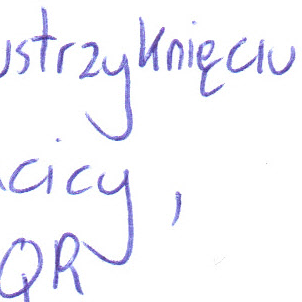 ustrzyknięciu
cicy,
QR